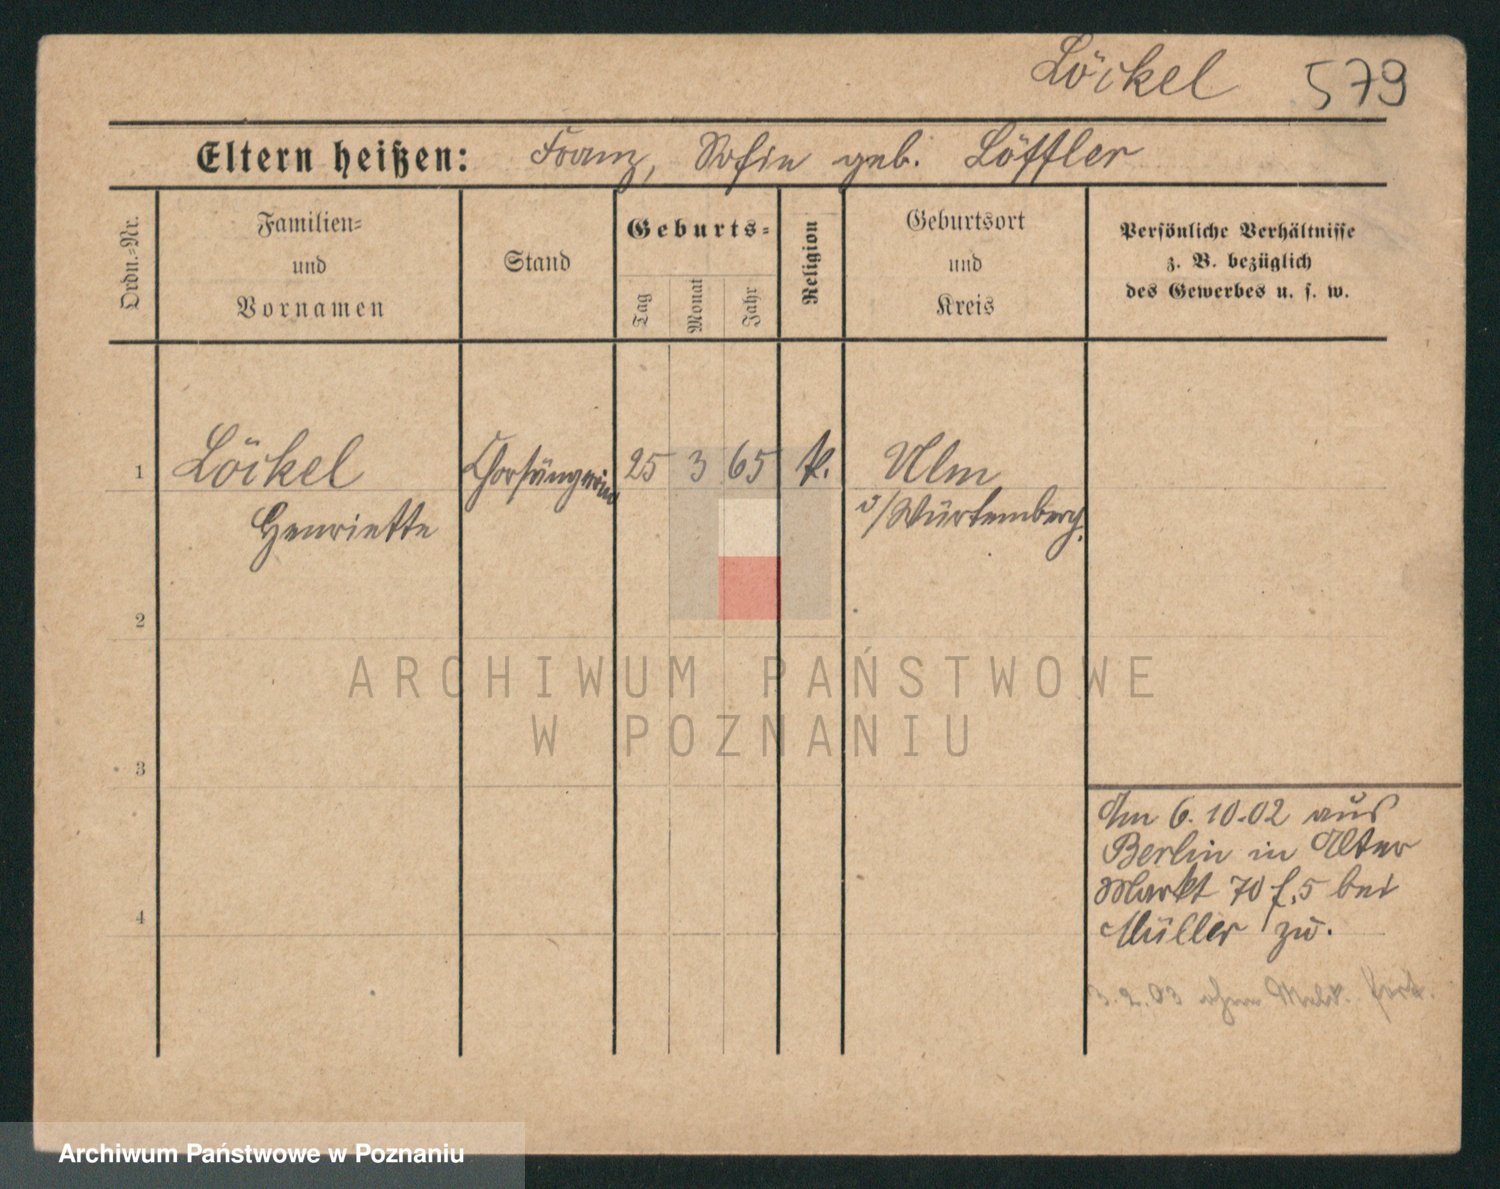 Löckel 579
Eltern heißen: Franz, Sofie geb. Löffler
Ordn.-Nr.
Familien-
und
Vornamen
Stand
Geburts-
Tag
Monat
Jahr
Religion
Geburtsort
und
Kreis
Persönliche Verhältnisse
z. B. bezüglich
des Gewerbes u. s. w.
1 Löckel Chorsängerin 25 3 65 k. Ulm
Henriette i/Würtemberg.
2
3
4
Am 6.10.02 aus
Berlin in Alter
Markt 70 f. 5 bei
Müller zu.
3.2.03 ohne Meld. fort.
ARCHIWUM PAŃSTWOWE
W POZNANIU
Archiwum Państwowe w Poznaniu